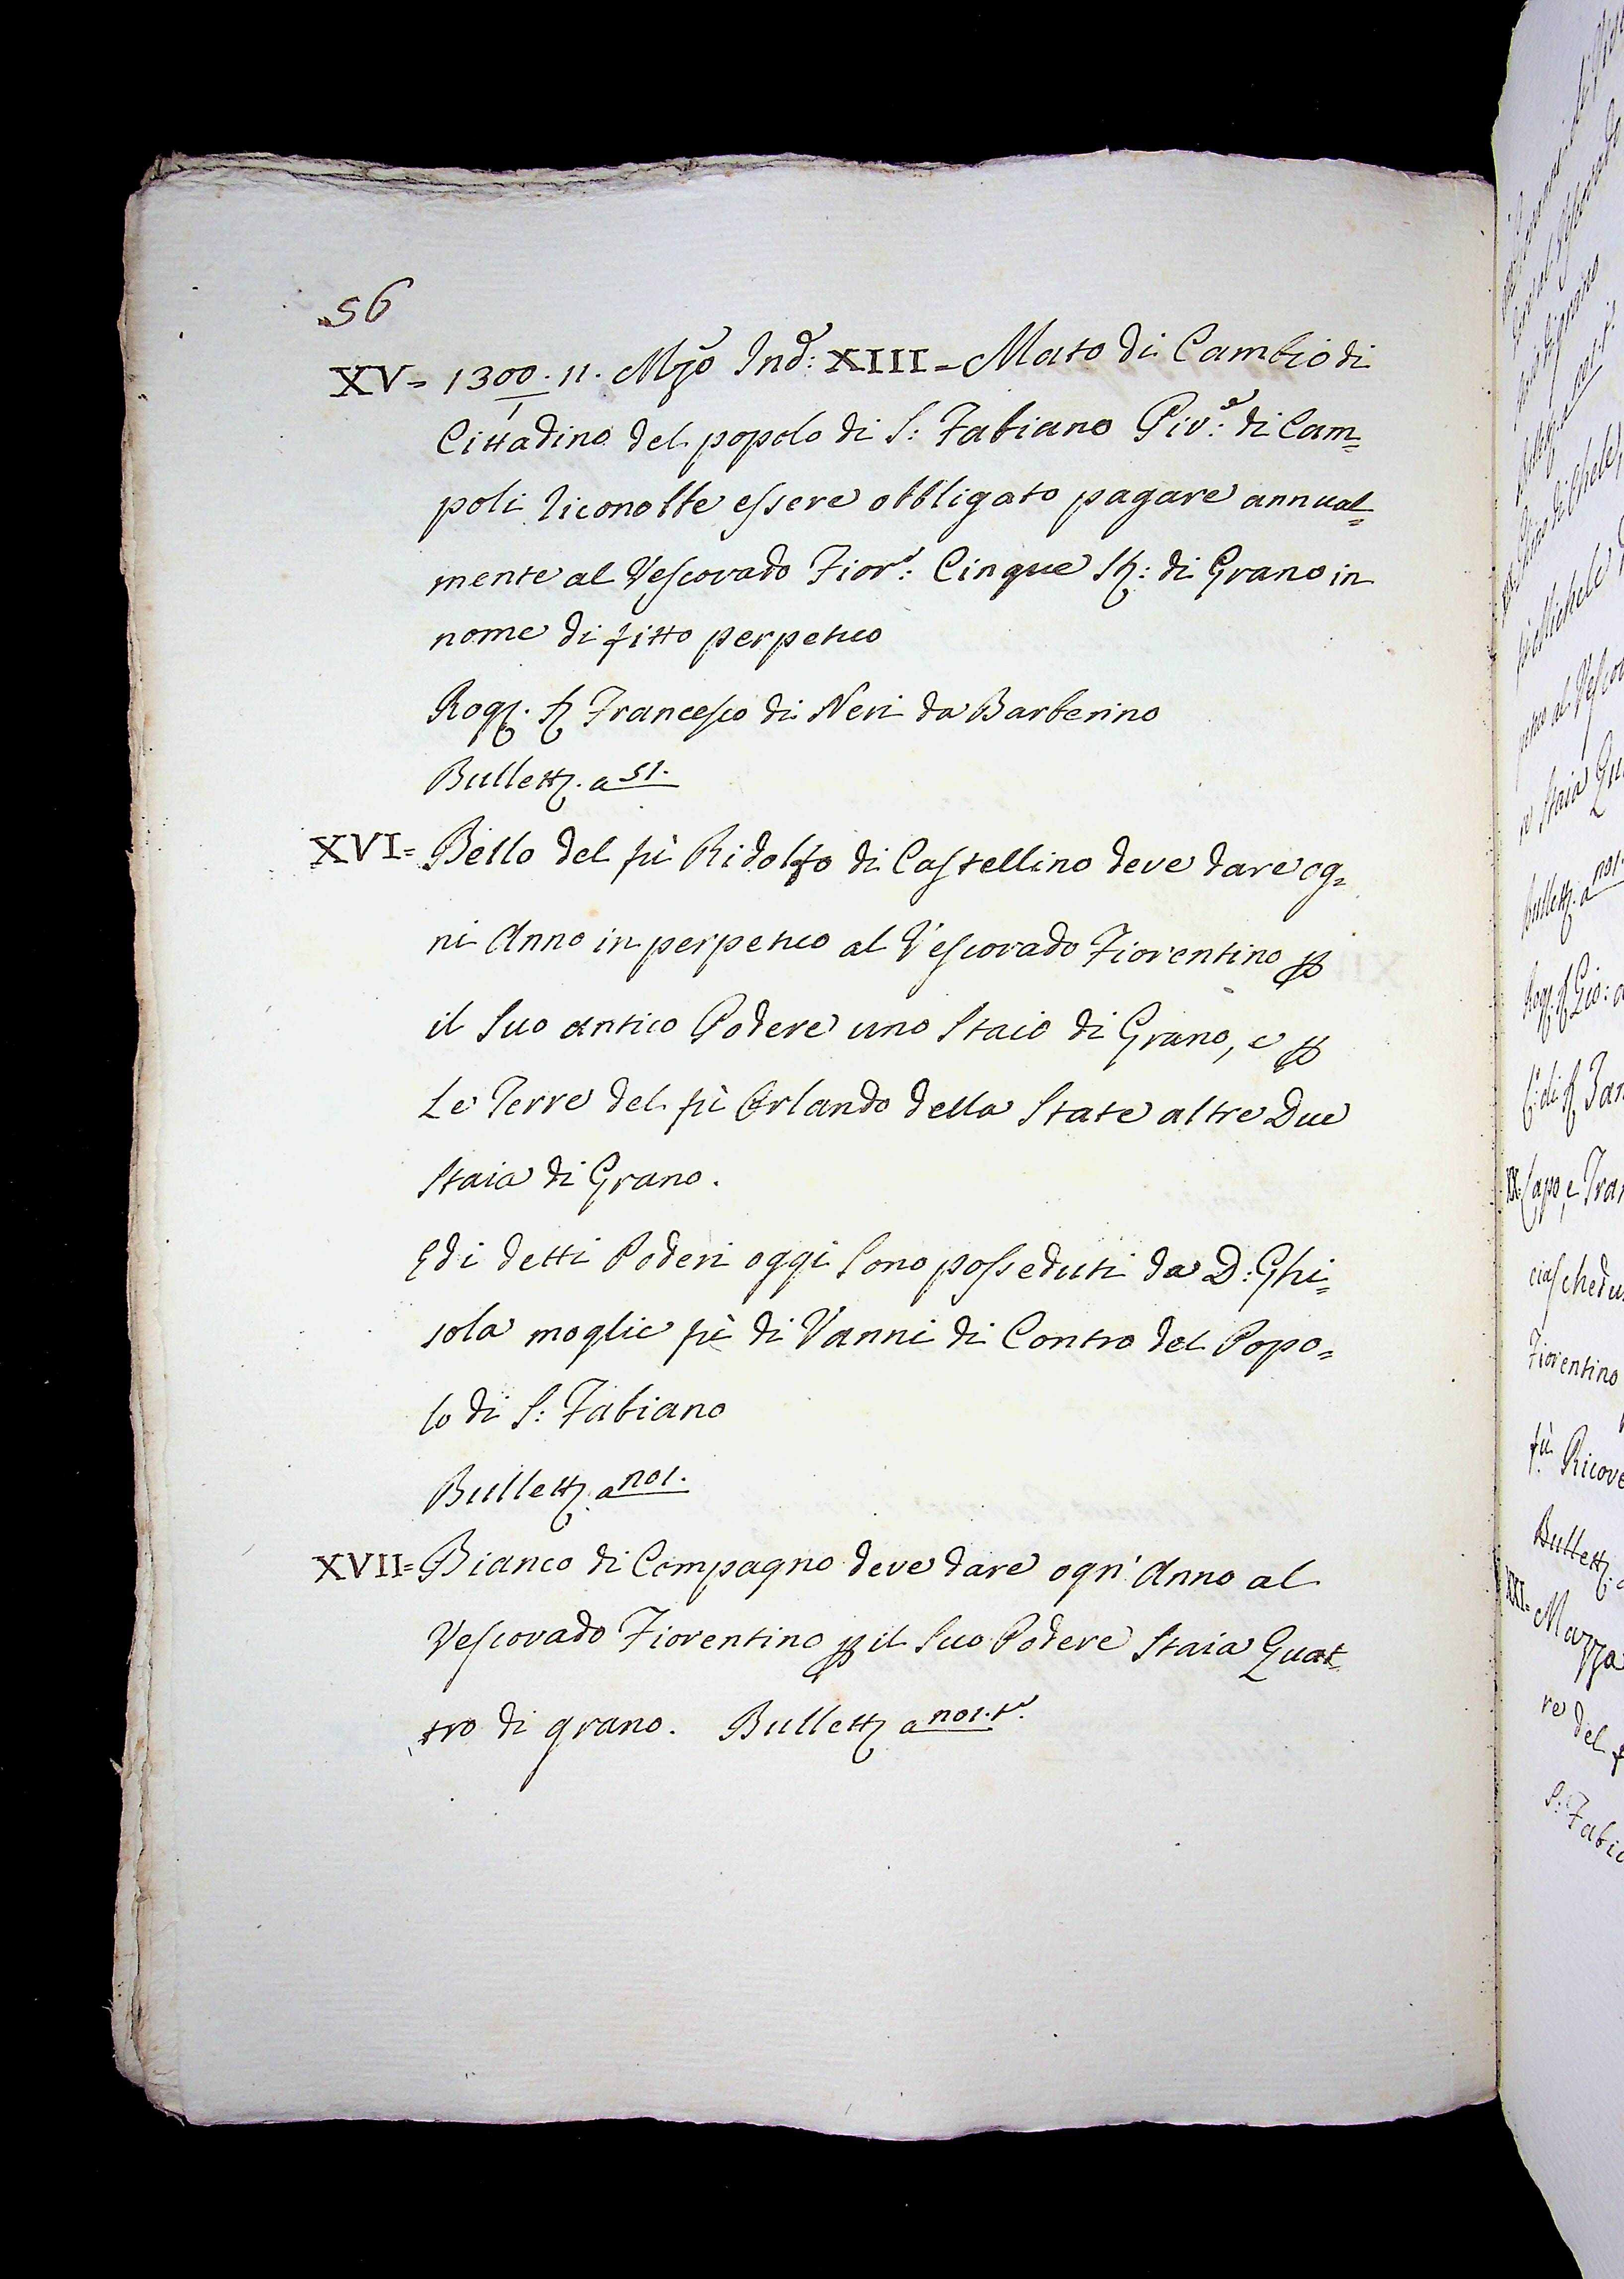 56
XV= 1300/1. 11. Mzo Ind: XIII = Mato di Cambio di
Cittadino del popolo di S: Fabiano Piv:e di Cam=
poli riconobbe essere obbligato pagare annual=
mente al Vescovado Fior: Cinque St: di Grano in
nome di fitto perpetuo
Rog. Francesco di Neri da Barberino
Bullett. a 51.
XVI= Bello del fù Ridolfo di Castellino deve dare og=
ni Anno in perpetuo al Vescovado Fiorentino p
il suo antico Podere uno Staio di Grano, e p
le Terre del fù Orlando della State altre Due
Staia di Grano.
E di detti Poderi oggi sono posseduti da D: Ghi=
sola moglie fù di Vanni di Contro del Popo=
lo di S: Fabiano
Bullett. a 101.
XVII= Bianco di Compagno deve dare ogn' Anno al
Vescovado Fiorentino p il suo Podere Staia Quat=
tro di grano. Bullett a 101. t.
fù Michele
Staia
Bullett. a 101.
Rog. Gio:
XX= Capo, e
Fiorentino
fù
Bullett.
XXI= Mazza
re del
S: Fabia